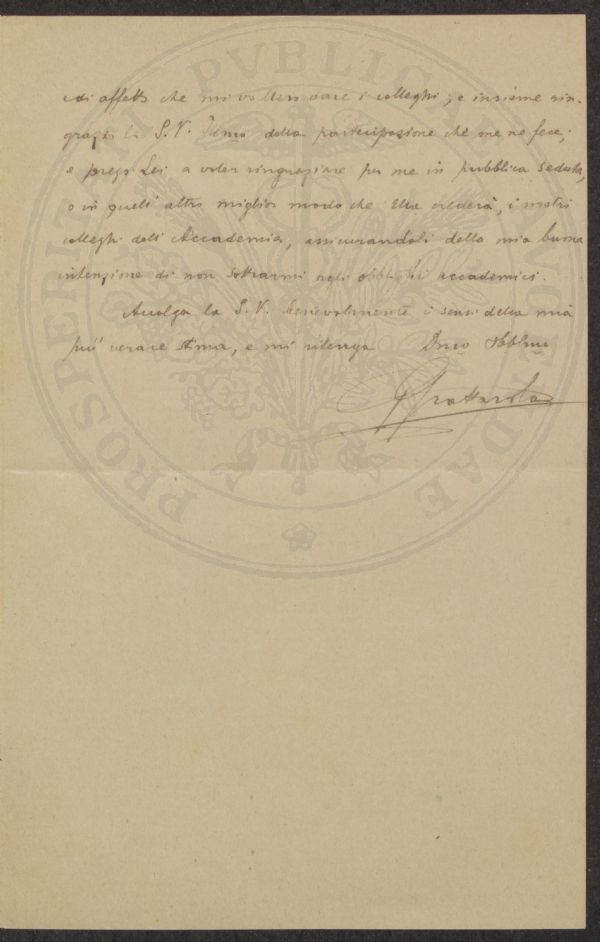 di affetto che mi vollero dare i colleghi; e insieme rin-
grazio la S. V. Illma della partecipazione che me ne fece;
e prego Lei a voler ringraziare per me in pubblica seduta,
o in quell' altro miglior modo che Ella crederà, i nostri
colleghi dell' Accademia, assicurandoli della mia buona
intenzione di non sottrarmi agli obblighi accademici.
Accolga la S. V. benevolmente i sensi della mia
più verace stima, e mi ritenga Devo Obblmo
G Grattarola
PROSPERITATI PVBLICAE AVGENDAE